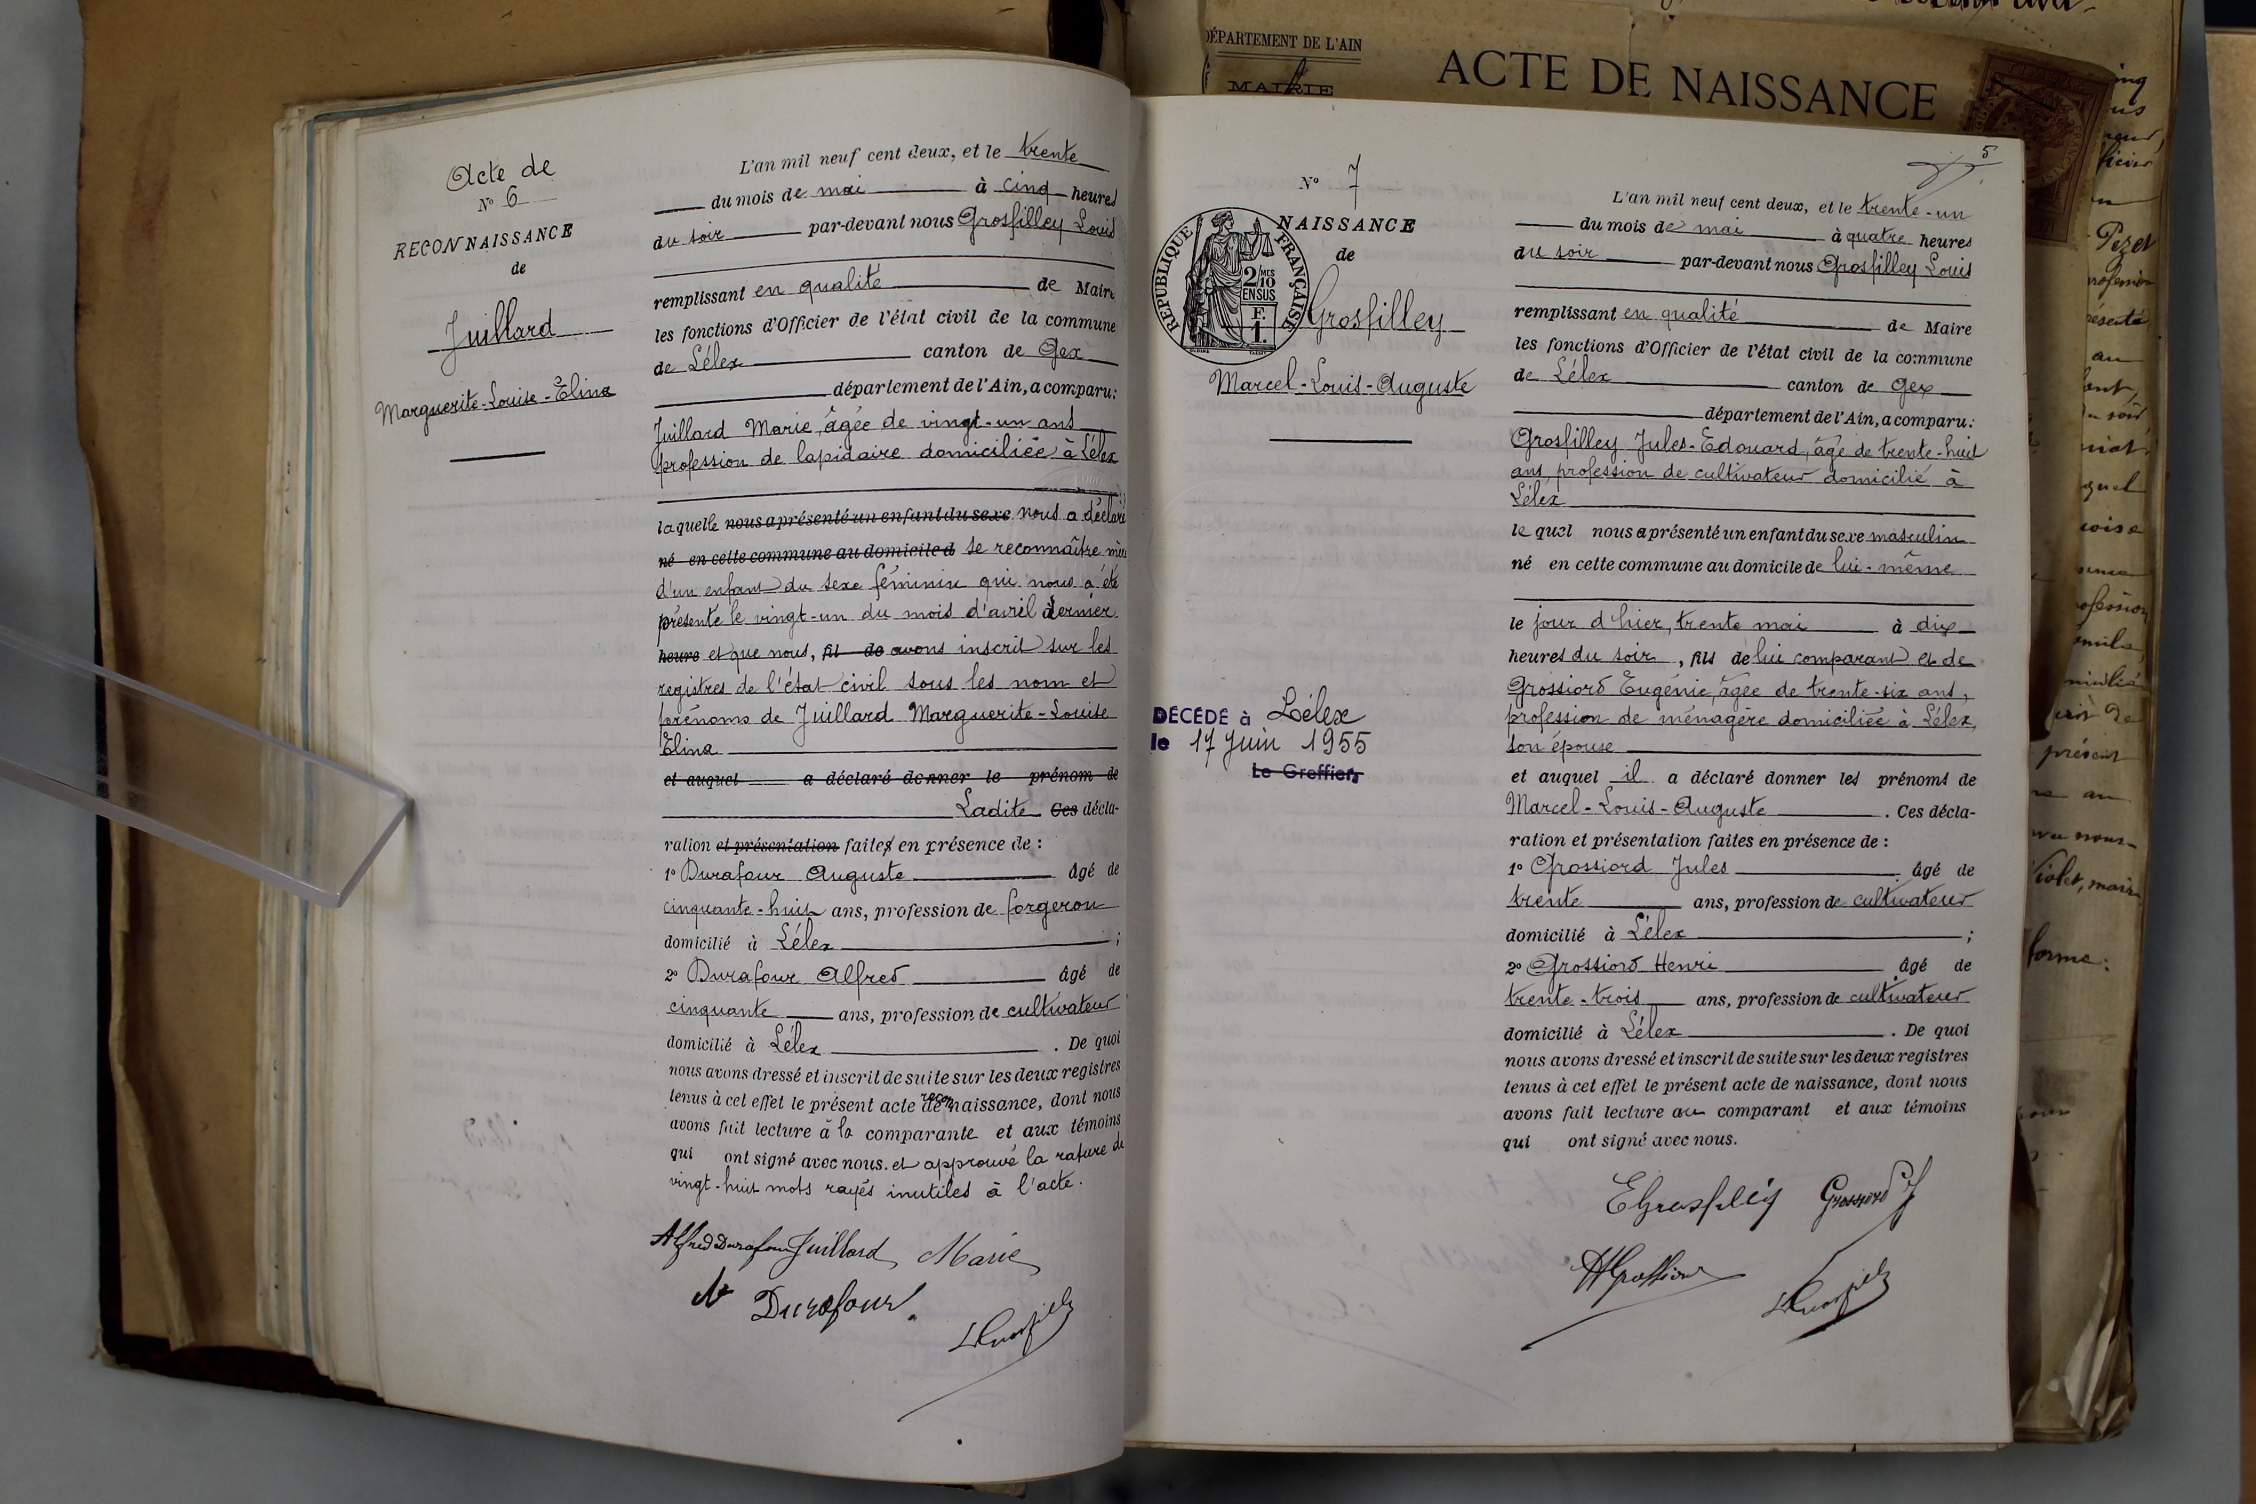 Acte de
N° 6
RECONNAISSANCE
de
Juillard
Marguerite-Louise-Elina
L'an mil neuf cent deux, et le trente
du mois de mai à cinq heures
du soir par-devant nous Grosfilley Louis
remplissant en qualité de Maire
les fonctions d'Officier de l'état civil de la commune
de Lélex canton de Gex
département de l'Ain, a comparu:
Juillard Marie, âgée de vingt-un ans
profession de lapidaire domiciliée à Lélex
laquelle nous a présenté un enfant du sexe nous a déclaré
né en cette commune au domicile d se reconnaître mère
d'un enfant du sexe féminin qui nous a été
présenté le vingt-un du mois d'avril dernier
heure et que nous, fil de avons inscrit sur les
registres de l'état civil sous les nom et
prénoms de Juillard Marguerite-Louise
Elina
et auquel a déclaré donner le prénom de
Ladite Ces décla-
ration et présentation faites en présence de :
1° Durafour Auguste âgé de
cinquante-huit ans, profession de forgeron
domicilié à Lélex ;
2° Durafour Alfred âgé de
cinquante ans, profession de cultivateur
domicilié à Lélex . De quoi
nous avons dressé et inscrit de suite sur les deux registres
tenus à cet effet le présent acte de reconnaissance, dont nous
avons fait lecture à la comparante et aux témoins
qui ont signé avec nous. et approuvé la rature de
vingt-huit mots rayés inutiles à l'acte.
Alfred Durafour Juillard Marie
Durafour
DÉPARTEMENT DE L'AIN
MAIRIE
ACTE DE NAISSANCE
5
N° 7
NAISSANCE
de
RÉPUBLIQUE FRANÇAISE
2/10 MES
EN SUS
F.
1.
Grosfilley
Marcel-Louis-Auguste
DÉCÉDÉ à Lélex
le 17 Juin 1955
Le Greffier,
L'an mil neuf cent deux, et le trente-un
du mois de mai à quatre heures
du soir par-devant nous Grosfilley Louis
remplissant en qualité de Maire
les fonctions d'Officier de l'état civil de la commune
de Lélex canton de Gex
département de l'Ain, a comparu:
Grosfilley Jules-Edouard, âgé de trente-huit
ans, profession de cultivateur domicilié à
Lélex
lequel nous a présenté un enfant du sexe masculin
né en cette commune au domicile de lui-même
le jour d'hier, trente mai à dix
heures du soir, fils de lui comparant et de
Grossiord Eugénie, âgée de trente-six ans,
profession de ménagère domiciliée à Lélex,
son épouse
et auquel il a déclaré donner les prénoms de
Marcel-Louis-Auguste . Ces décla-
ration et présentation faites en présence de :
1° Grossiord Jules âgé de
trente ans, profession de cultivateur
domicilié à Lélex ;
2° Grossiord Henri âgé de
trente-trois ans, profession de cultivateur
domicilié à Lélex . De quoi
nous avons dressé et inscrit de suite sur les deux registres
tenus à cet effet le présent acte de naissance, dont nous
avons fait lecture au comparant et aux témoins
qui ont signé avec nous.
EGrosfilley Grossiord J
HGrossiord
Pezet
profession
présenté
au
présent
Violet, maire
forme: